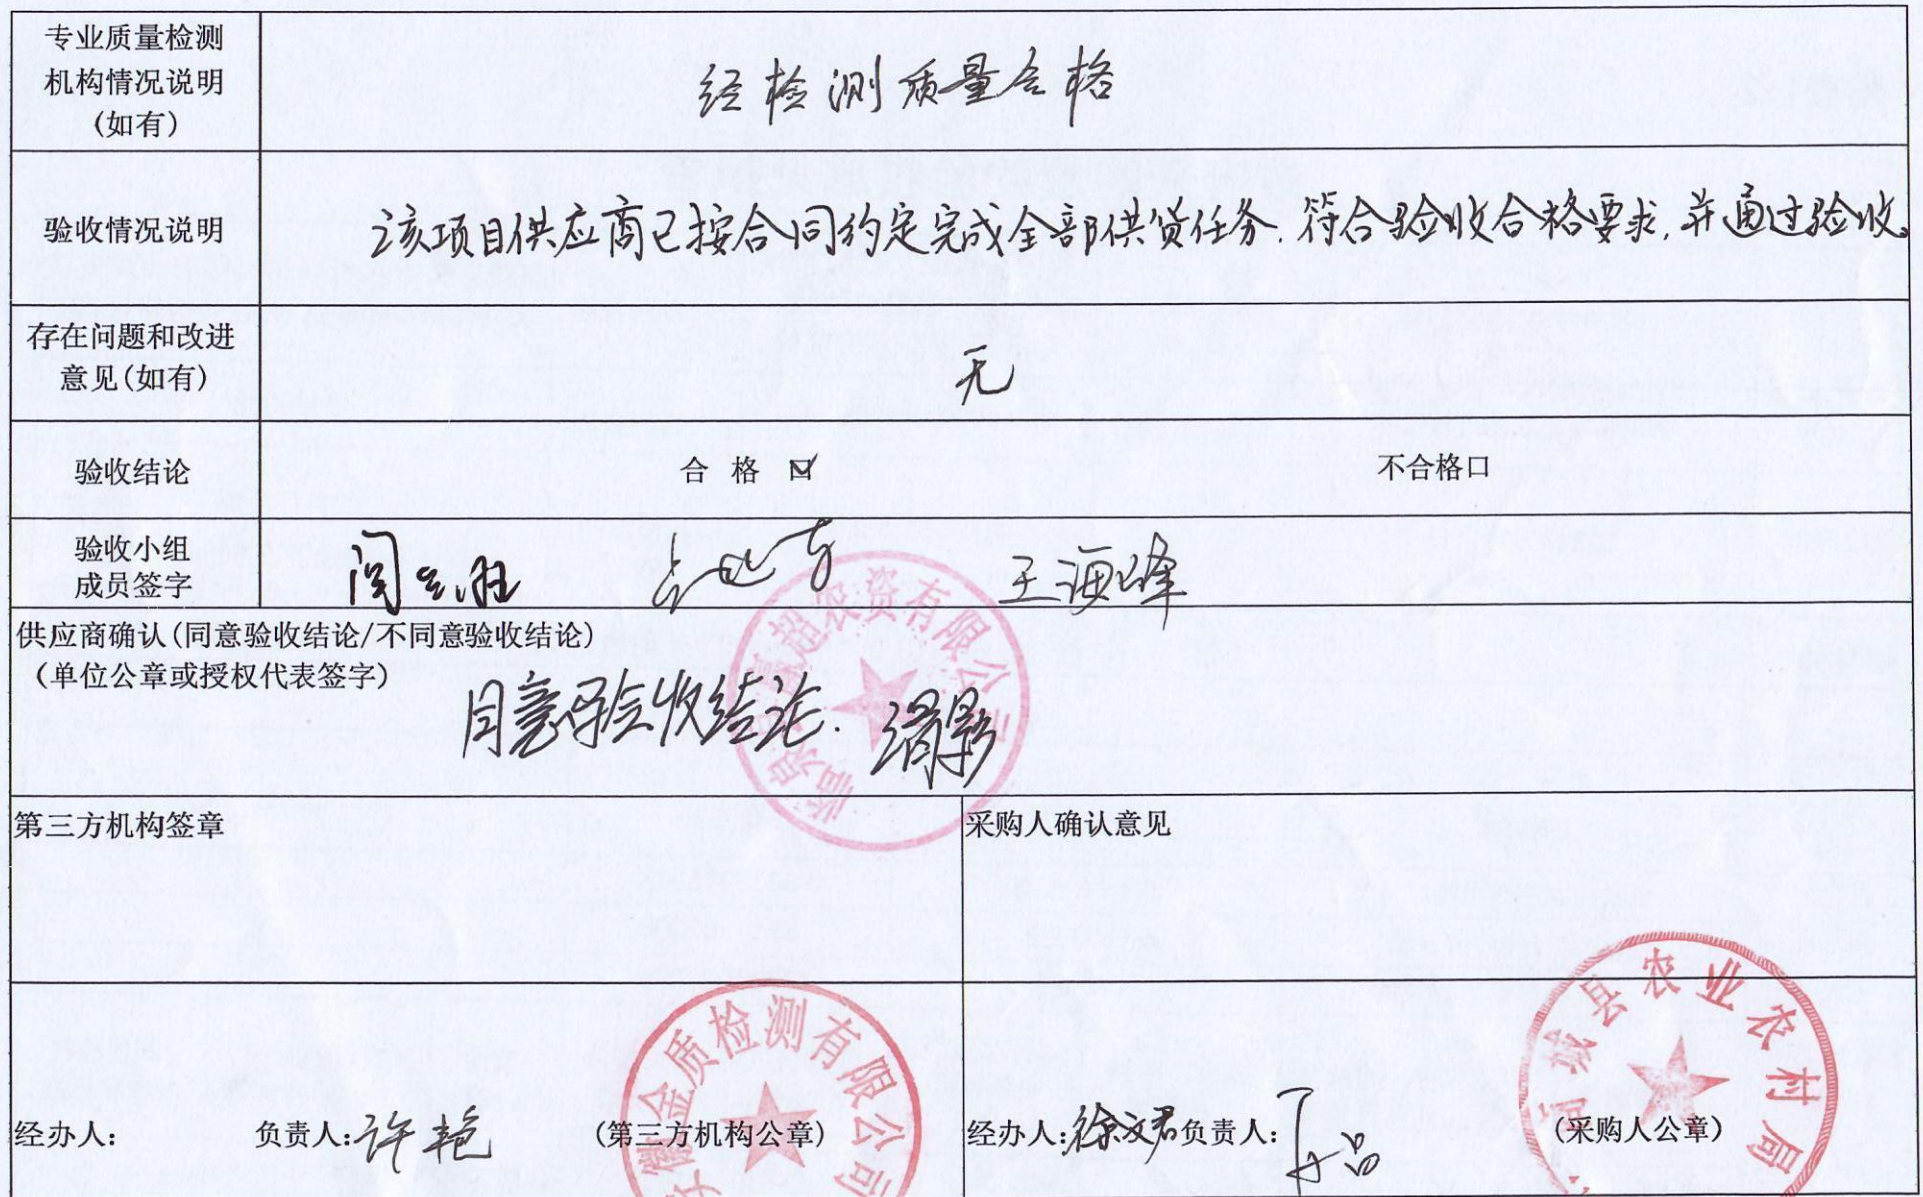 专业质量检测
机构情况说明
(如有)
经检测质量合格
验收情况说明
该项目供应商已按合同约定完成全部供货任务.符合验收合格要求,并通过验收。
存在问题和改进
意见(如有)
无
验收结论
合 格 ☑
不合格口
验收小组
成员签字
王海峰
供应商确认(同意验收结论/不同意验收结论)
(单位公章或授权代表签字)
同意验收结论.
超农资有限公司
第三方机构签章
采购人确认意见
经办人:
负责人:许艳
(第三方机构公章)
徽金质检测有限公司
经办人:徐文君负责人:
(采购人公章)
县农业农村局